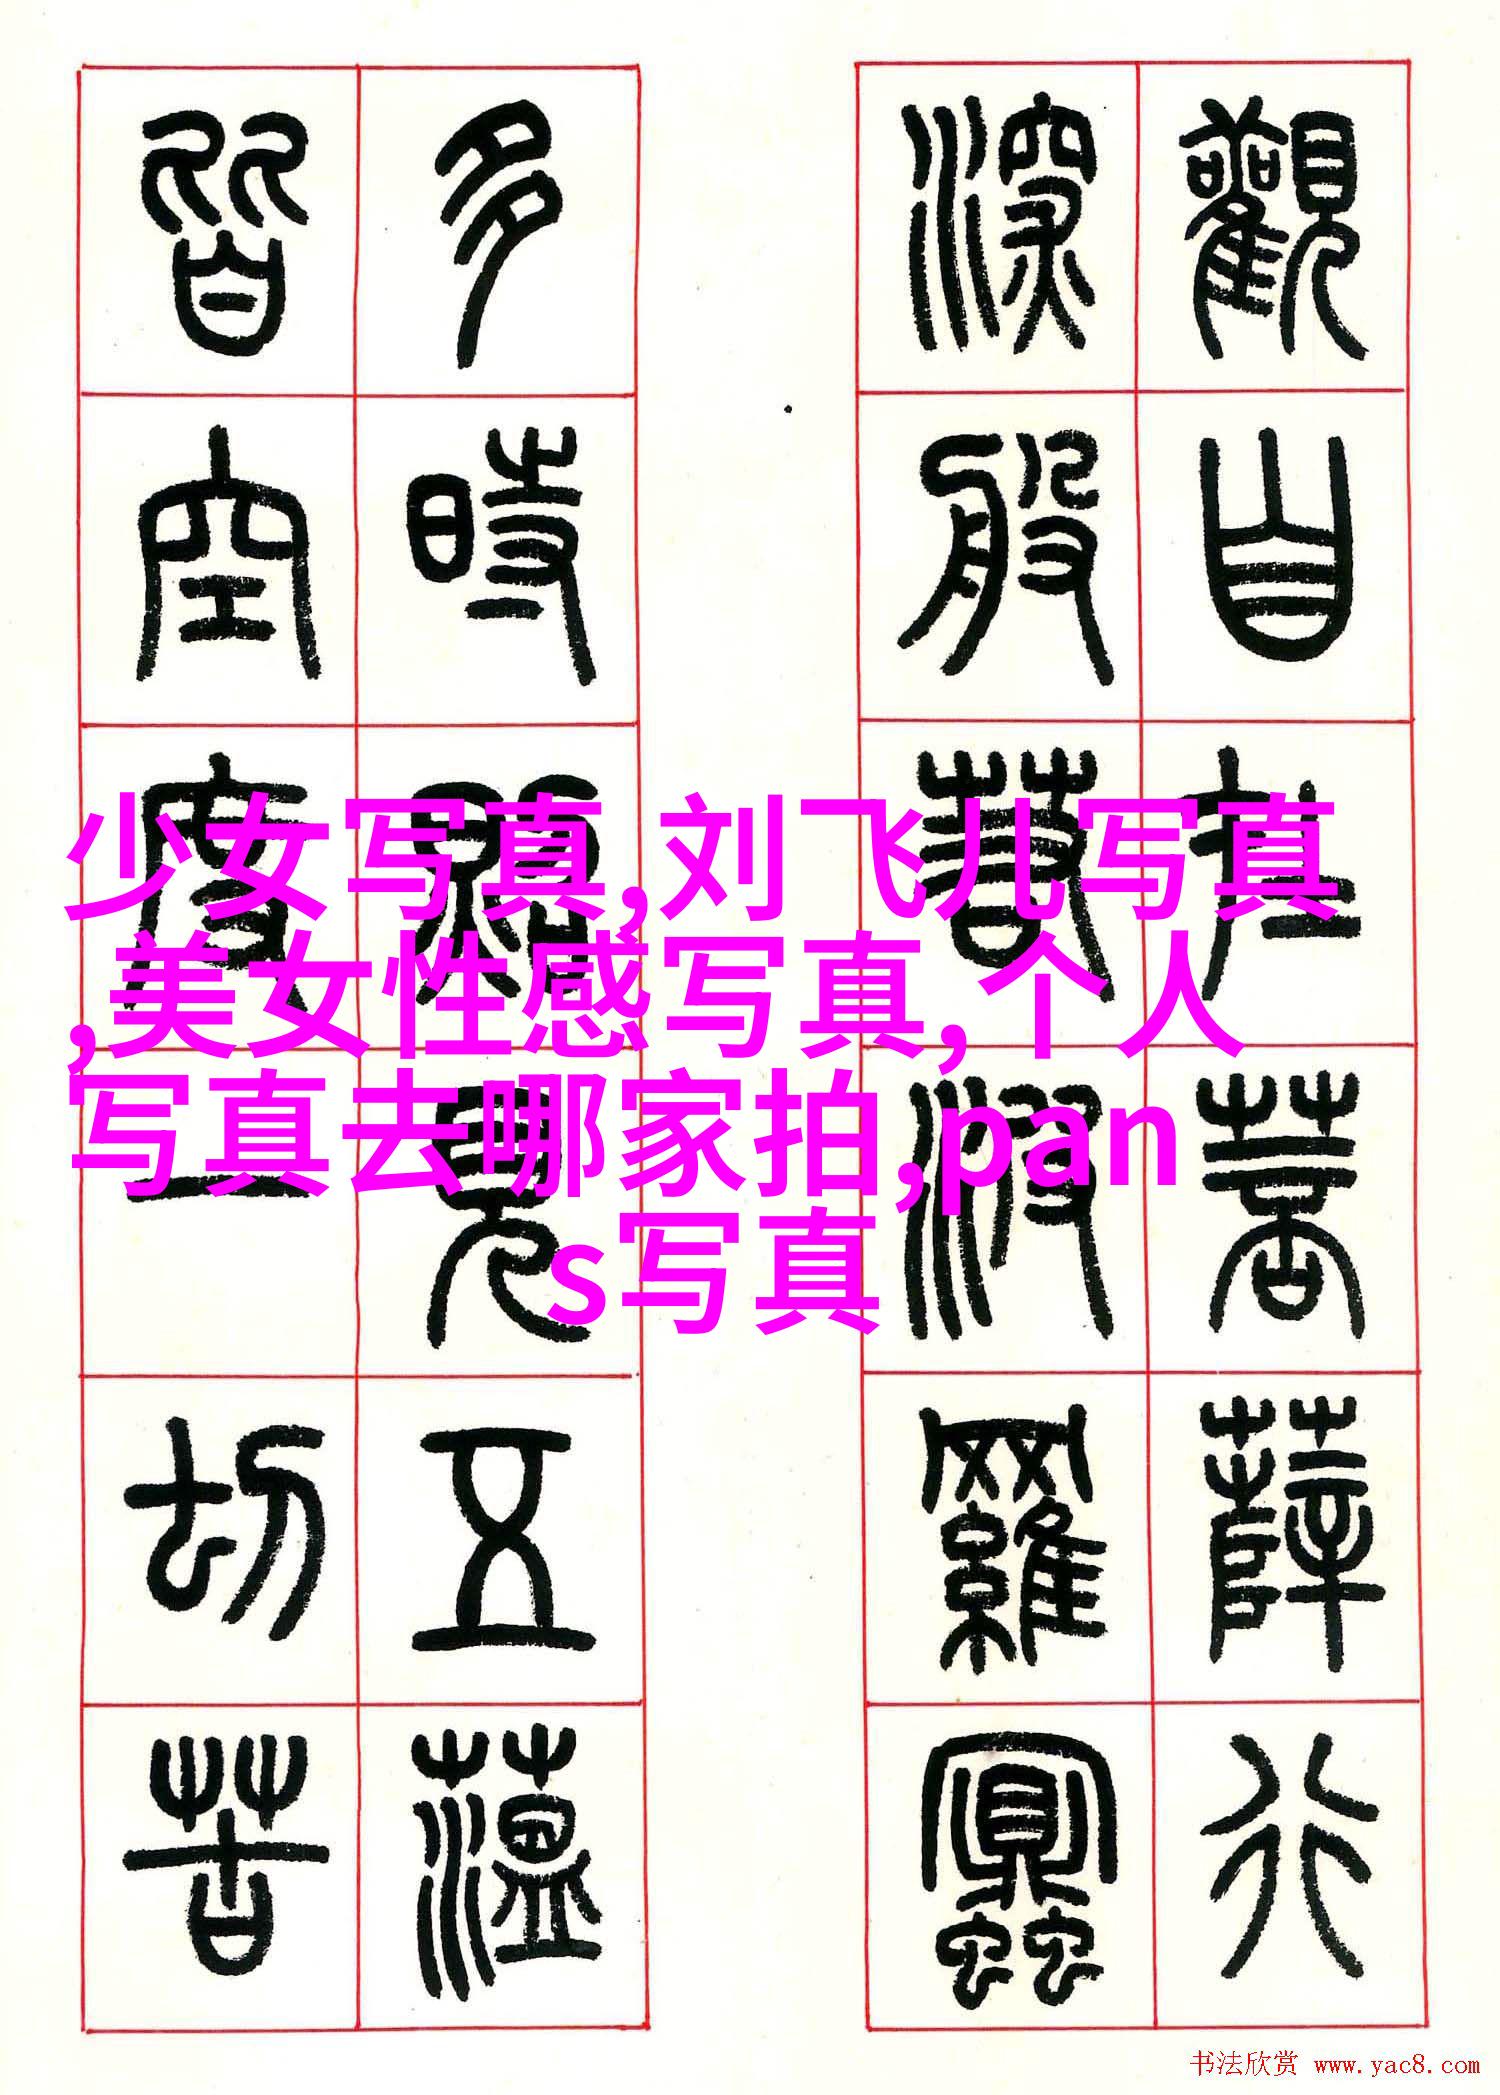 觀自在菩薩行
深般若波羅蜜
多時照見五蘊
皆空度一切苦
少女写真,刘飞儿写真
,美女性感写真,个人
写真去哪家拍,pan
s写真
书法欣赏 www.yac8.com